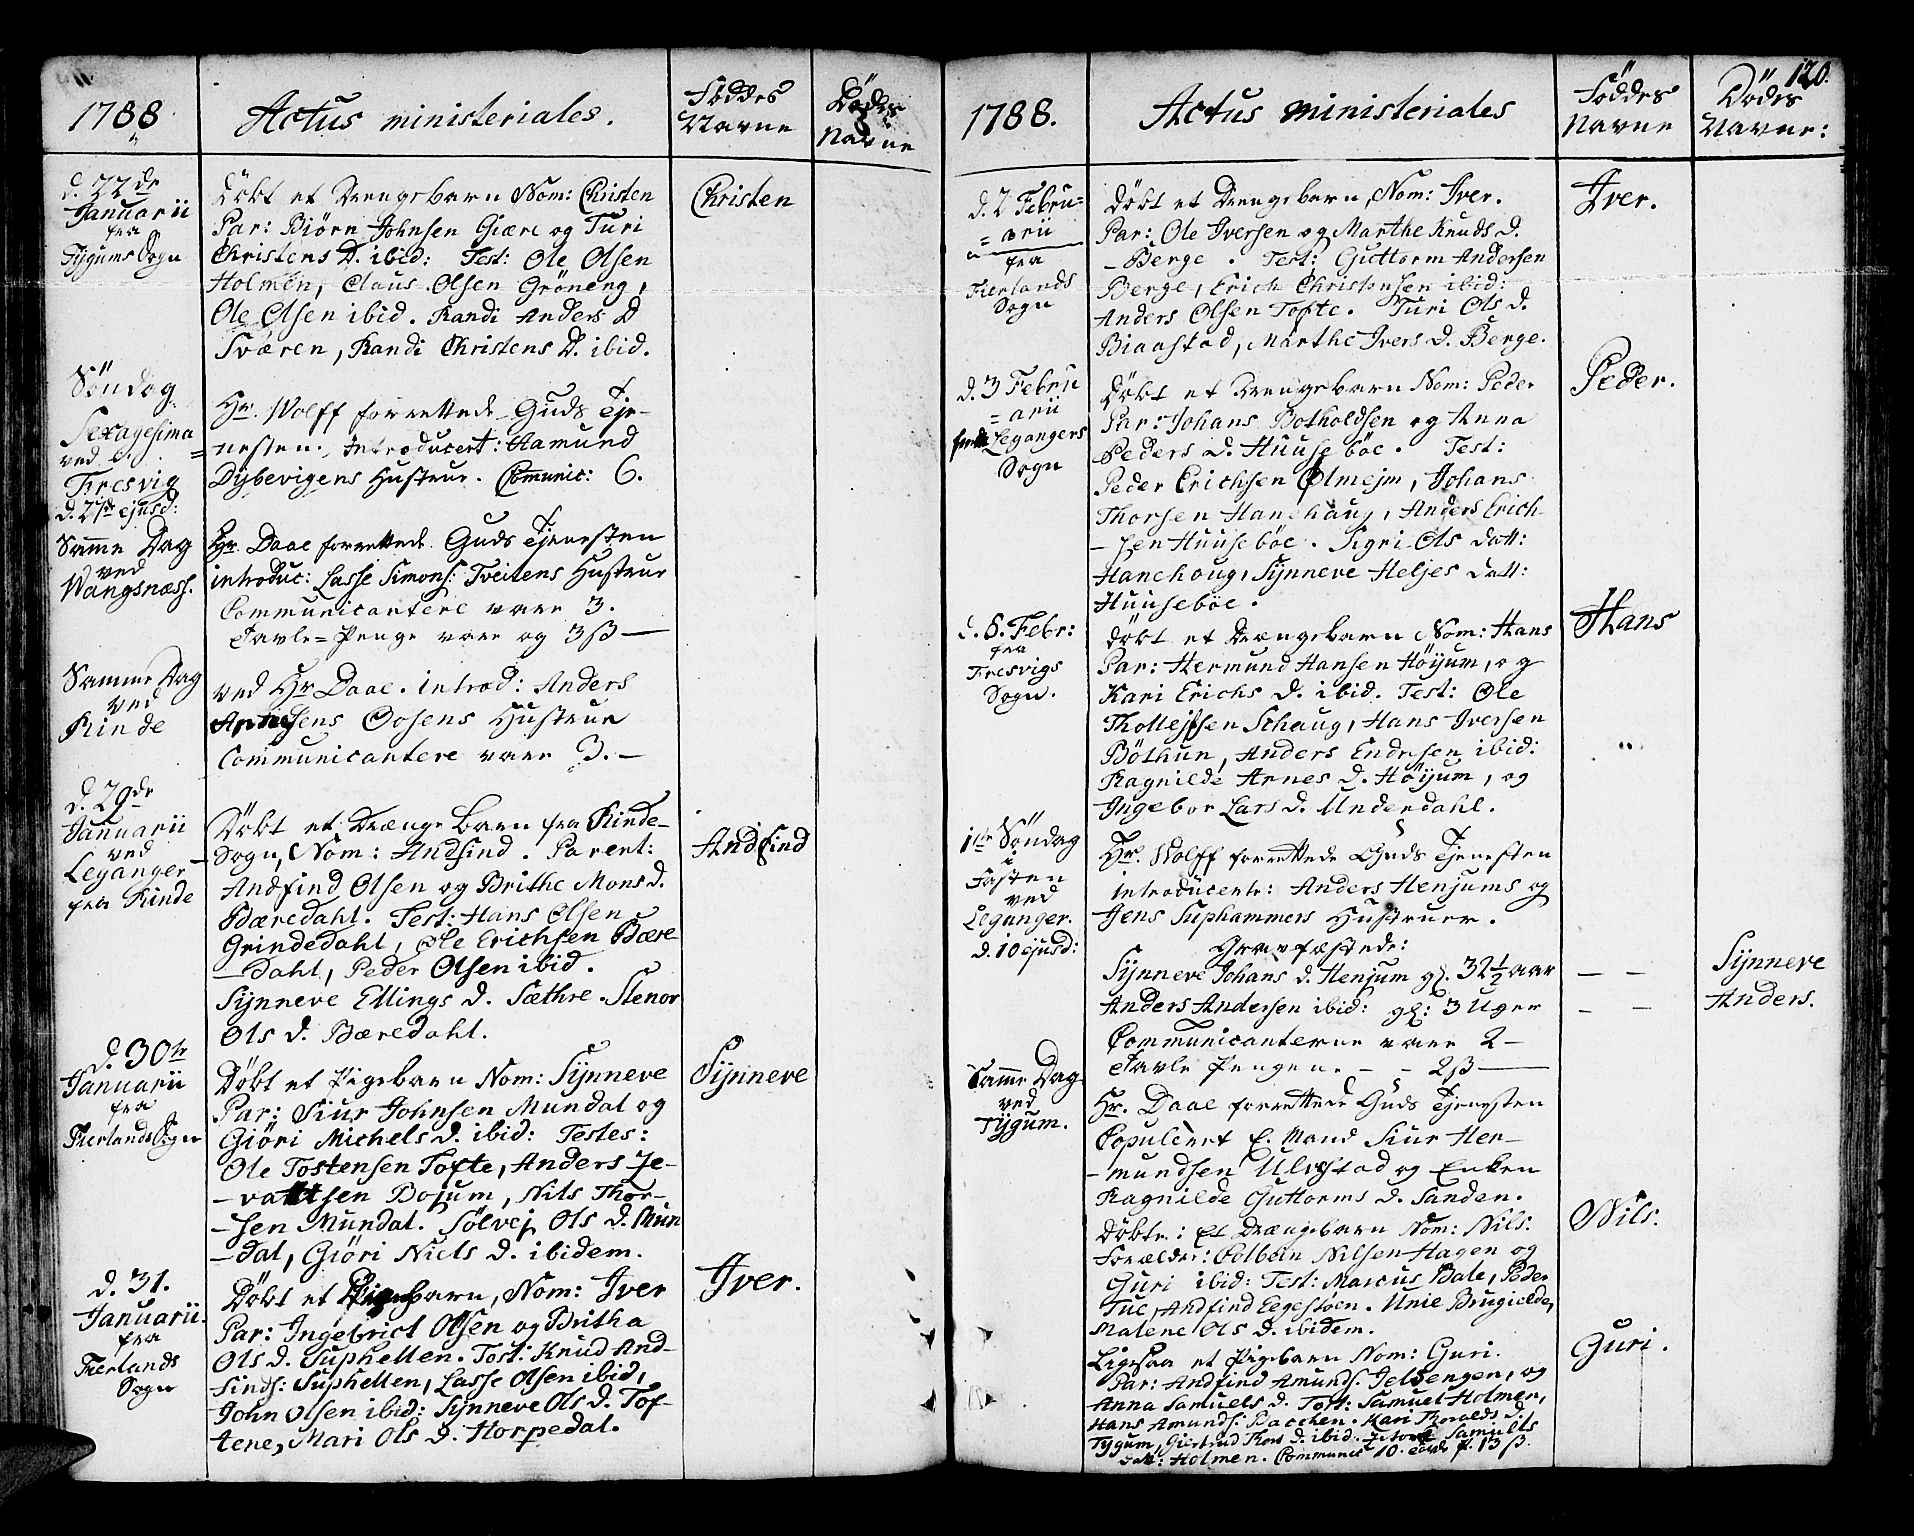 1788
Actus ministeriales.
Föddes
Navne
Dödes
Navne
d. 22de
Januarii
fra
Tygums Sogn
Döbt et Drengebarn Nom: Christen
Par: Biörn Johnsen Giære og Turi
Christens D. ibid: Test: Ole Olsen
Holmen, Claus Olsen Gröneng,
Ole Olsen ibid. Randi Anders D
Sværen, Randi Christens D. ibid.
Christen
Söndag
Sexagesima
ved
Fresvig
d. 27de ejusd:
Hr. Wolff forrettede Guds Tje-
nesten, Introducert: Aamund
Dybevigens Hustrue. Communic: 6.
Samme Dag
ved
Wangsnæss.
Hr. Daae forrettede Guds Tjenesten
introduc: Lasse Simons: Tveitens Hustrue
Communicantere vare 3.
Tavle=Penge vare og 3 ß —
Samme Dag
ved
Rinde
ved Hr Daae. introd: Anders
Arnesens Oosens Hustrue
Communicantere vare 3. —
d. 29de
Januarii
ved
Leganger
fra Rinde
Döbt et Drænge Barn fra Rinde-
Sogn, Nom: Andfind. Parent:
Andfind Olsen og Brithe Mons d.
Bæredahl. Test: Hans Olsen
Grindedahl, Ole Erichsen Bære-
-dahl, Peder Olsen ibid.
Synneve Ellings d. Sæthre. Stenor
Ols d. Bæredahl.
Andfind
d. 30te
Januarii
fra
Fierlands Sogn
Döbt et Pigebarn Nom: Synneve
Par: Siur Johnsen Mundal og
Giöri Michels d. ibid: Testes:
Ole Tostensen Tofte, Anders Je-
-vattsen Bojum, Nils Thor-
-sen Mundal. Sölvej Ols d. Mun
-dal, Giöri Niels d. ibidem.
Synneve
d. 31.
Januarii.
fra
Fierlands
Sogn
Döbt et barn, Nom: Iver
Par: Ingebrict Olsen og Britha
Ols d. Suphellen. Test: Knud And-
finds: Suphellen, Lasse Olsen ibid,
John Olsen ibid: Synneve Ols d. Tof-
tene, Mari Ols d. Horpedal.
Iver.
1788.
Actus ministeriales
Föddes
Navne
120.
Dödes
Navne:
d. 2 Febru=
=arii
fra
Fierlands
Sogn
Döbt et Drengebarn, Nom: Iver.
Par: Ole Iversen og Marthe Knuds d.
-Berge. Test: Guttorm Andersen
Berge, Erich Christensen ibid:
Anders Olsen Tofte. Turi Ols d.
Biaastad, Marthe Ivers d. Berge.
Iver.
d. 3 Febru
=arii
Legangers
Sogn
Döbt et Drengebarn Nom: Peder
Par: Johans Botholdsen og Anna
Peders d. Huuseböe. Test:
Peder Erichsen Olmejm, Johans
Thorsen Hanehaug, Anders Erich-
-sen Huuseböe. Sigri Ols datt:
Hanehoug, Synneve Heljes datt:
Huuseböe.
Peder.
d. 6. Febr:
fra
Fresvigs
Sogn.
Döbt et Drængebarn Nom: Hans
Par: Hermund Hansen Höyum, og
Kari Erichs d. ibid. Test: Ole
Thollefsen Schaug, Hans Iversen
Böthun, Anders Endresen ibid:
Ragnilde Arnes d. Höyum, og
Ingebor Lars d. Underdahl.
Hans
1ste Söndag
i
Fasten
ved
Leganger.
d. 10 ejusd:
Hr. Wolff forrettede Guds Tjenesten
introducerte: Anders Henjums og
Jens Suphammers Hustruer.
Gravfæstede:
Synneve Johans d. Henjum gl. 32½ aar
Anders Andersen ibid: gl: 3 Uger
Communicanterne vare 2 —
Tavle Pengene - - 2 ß —
— —
— —
Synneve
Anders.
Samme Dag
ved
Tygum.
Hr. Daae forrettede Guds Tjenesten
Copuleret E. Mand Siur Her-
-mundsen Ulvestad og Enken
Ragnilde Guttorms d. Sanden.
Döbte: Et Drængebarn Nom: Nils.
Forælder: Colbein Nilsen Hagen og
Guri ibid: Test: Marcus Bale, Peder
Tue, Andfind Eegestöen. Unie Brugielde,
Malene Ols d. ibidem.
Nils.
Ligesaa et Pigebarn Nom: Guri.
Par: Andfind Amunds. Jelsengen, og
Anna Samuels d. Test: Samuel Holmen,
Hans Amunds: Bacchen. Kari Thoralds d.
Tygum, Giertrud Thors d. ibid. Samuels
datt: Holmen. Communic 10. Tavle p. 13 ß.
Guri.